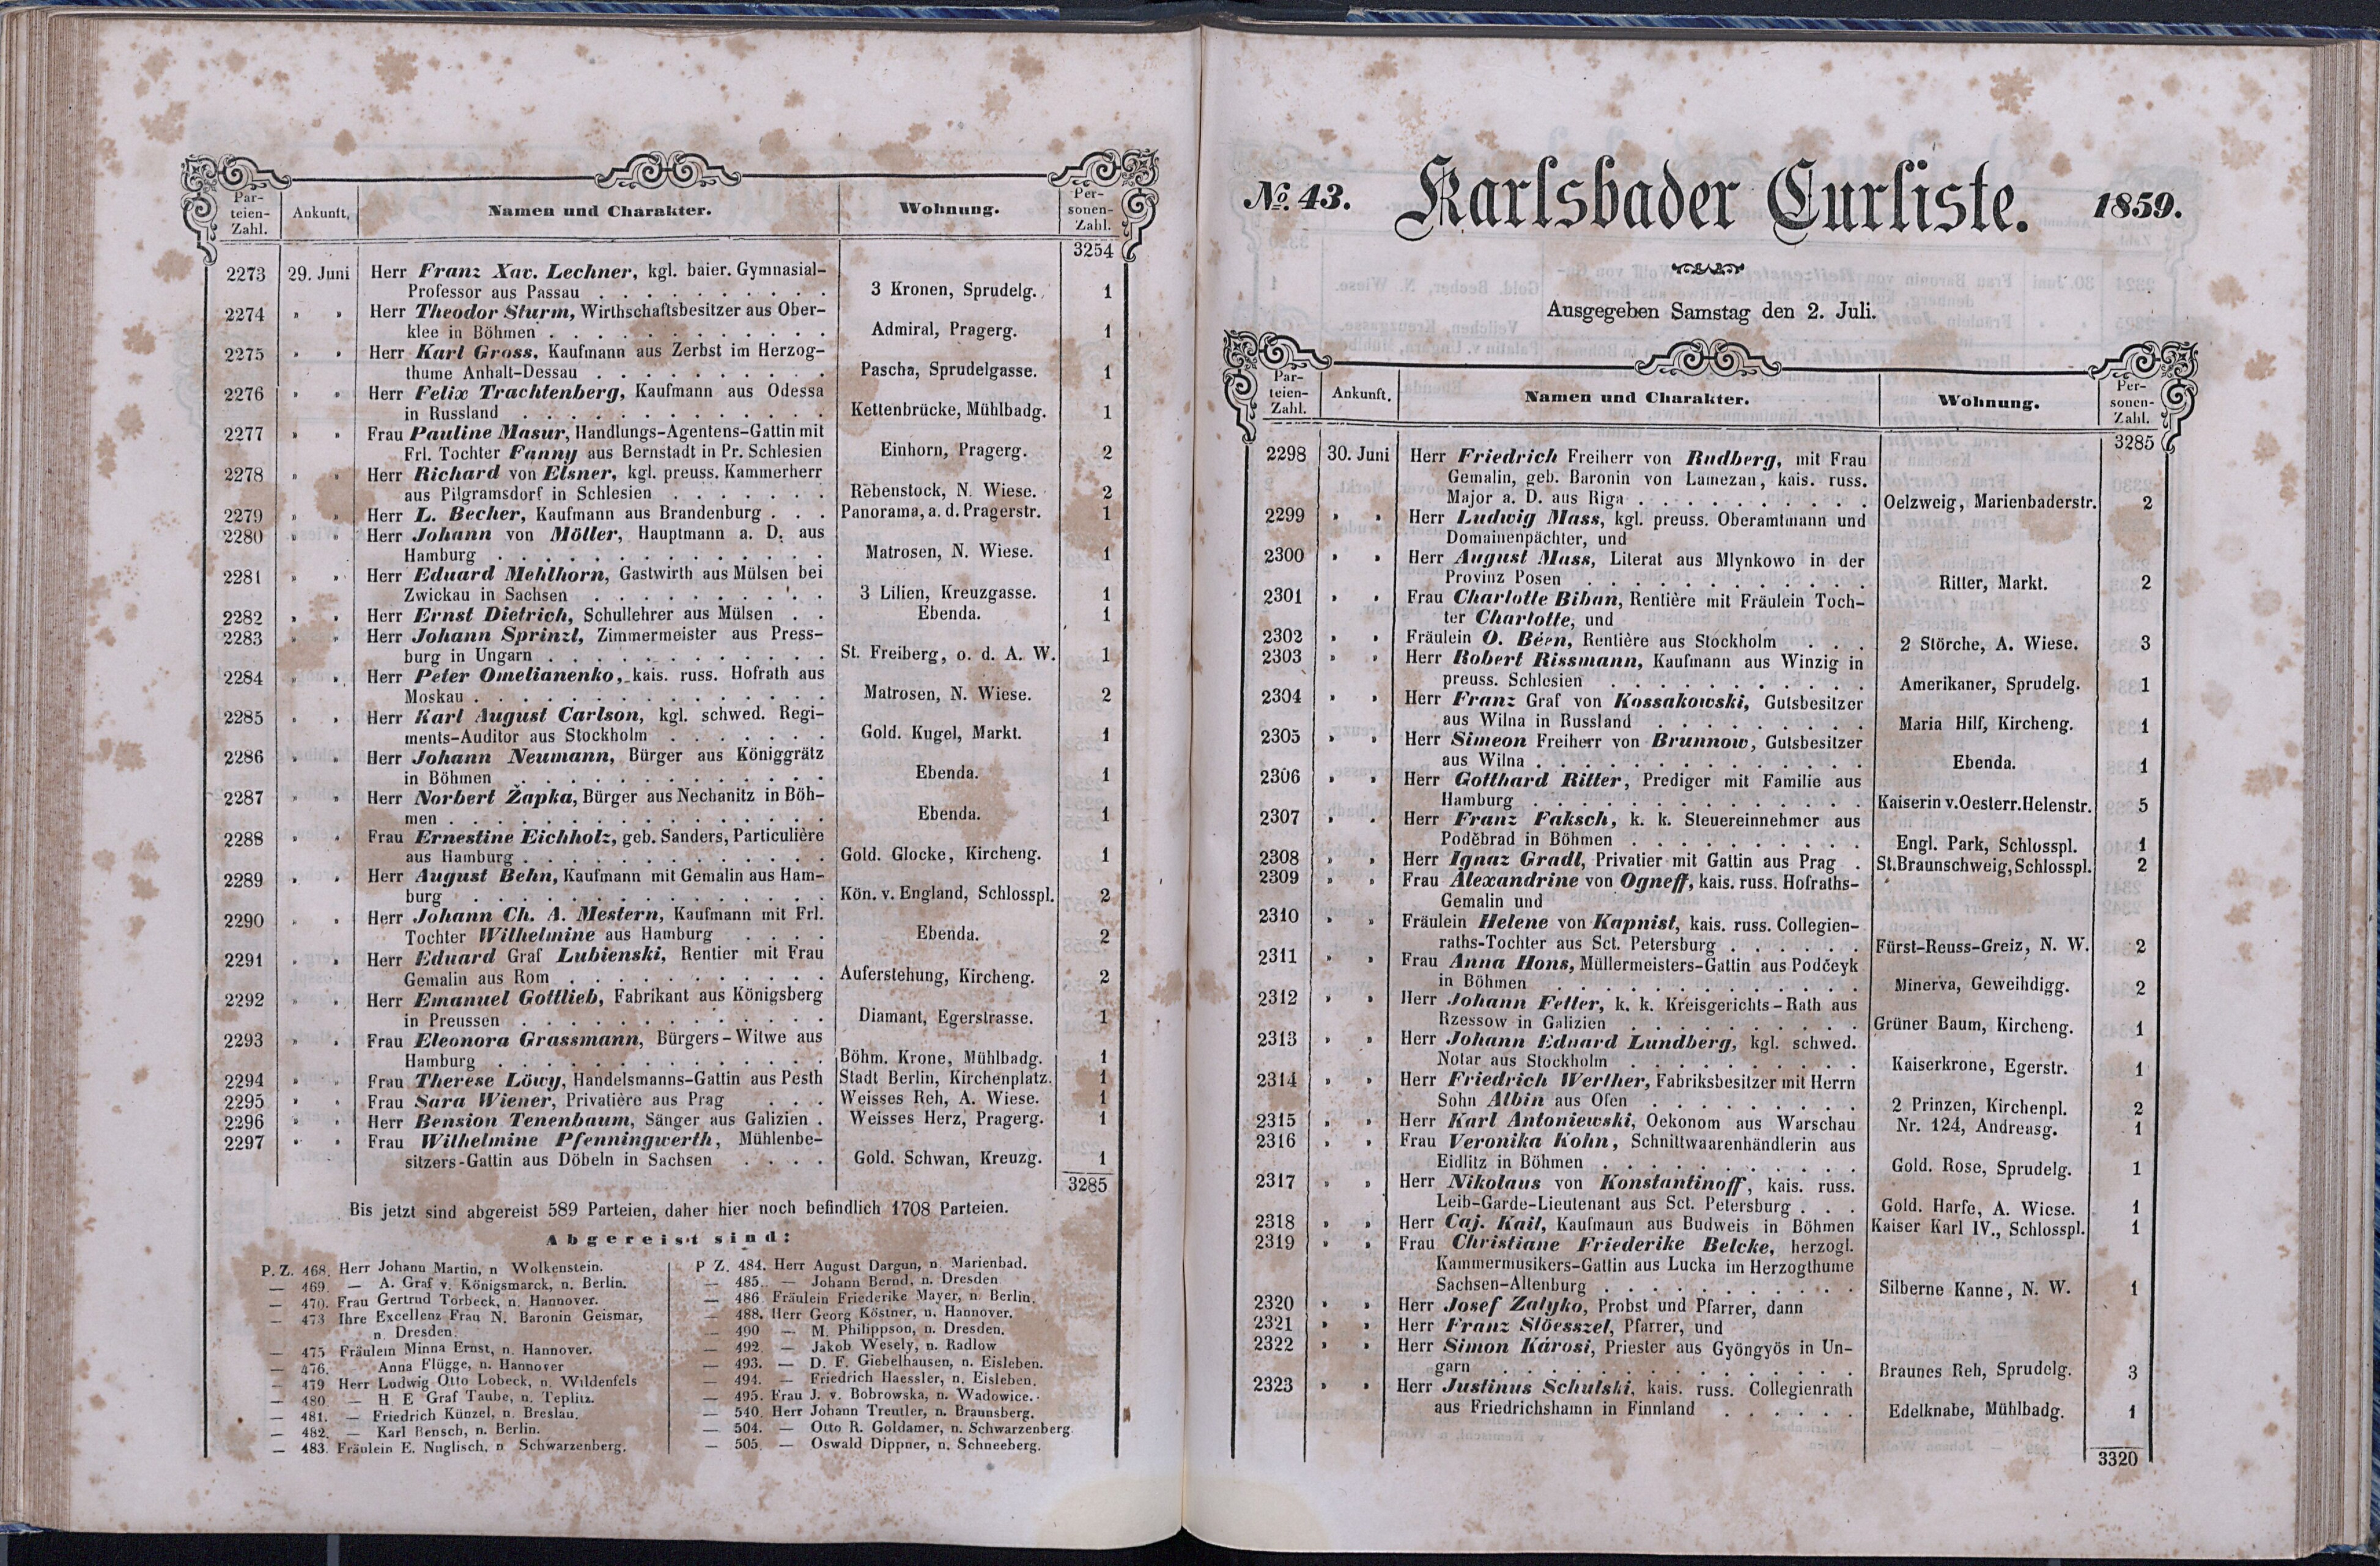 Par-
teien-
Zahl.
Ankunft,
Namen und Charakter.
Wohnung.
Per-
sonen-
Zahl.
3254
2273 29. Juni Herr Franz Xav. Lechner, kgl. baier. Gymnasial-
Professor aus Passau . . . . . . . . . . 3 Kronen, Sprudelg. 1
2274 " " Herr Theodor Sturm, Wirthschaftsbesitzer aus Ober-
klee in Böhmen . . . . . . . . . . . . Admiral, Pragerg. 1
2275 " " Herr Karl Gross, Kaufmann aus Zerbst im Herzog-
thume Anhalt-Dessau . . . . . . . . . . Pascha, Sprudelgasse. 1
2276 " " Herr Felix Trachtenberg, Kaufmann aus Odessa
in Russland . . . . . . . . . . . . . Kettenbrücke, Mühlbadg. 1
2277 " " Frau Pauline Masur, Handlungs-Agentens-Gattin mit
Frl. Tochter Fanny aus Bernstadt in Pr. Schlesien Einhorn, Pragerg. 2
2278 " " Herr Richard von Elsner, kgl. preuss. Kammerherr
aus Pilgramsdorf in Schlesien . . . . . . . Rebenstock, N. Wiese. 2
2279 " " Herr L. Becher, Kaufmann aus Brandenburg . . . Panorama, a. d. Pragerstr. 1
2280 " " Herr Johann von Möller, Hauptmann a. D. aus
Hamburg . . . . . . . . . . . . . . Matrosen, N. Wiese. 1
2281 " " Herr Eduard Mehlhorn, Gastwirth aus Mülsen bei
Zwickau in Sachsen . . . . . . . . . . 3 Lilien, Kreuzgasse. 1
2282 " " Herr Ernst Dietrich, Schullehrer aus Mülsen . . Ebenda. 1
2283 " " Herr Johann Sprinzl, Zimmermeister aus Press-
burg in Ungarn . . . . . . . . . . . . St. Freiberg, o. d. A. W. 1
2284 " " Herr Peter Omelianenko, kais. russ. Hofrath aus
Moskau . . . . . . . . . . . . . . . Matrosen, N. Wiese. 2
2285 " " Herr Karl August Carlson, kgl. schwed. Regi-
ments-Auditor aus Stockholm . . . . . . . Gold. Kugel, Markt. 1
2286 " " Herr Johann Neumann, Bürger aus Königgrätz
in Böhmen . . . . . . . . . . . . . Ebenda. 1
2287 " " Herr Norbert Žapka, Bürger aus Nechanitz in Böh-
men . . . . . . . . . . . . . . . . Ebenda. 1
2288 " " Frau Ernestine Eichholz, geb. Sanders, Particulière
aus Hamburg . . . . . . . . . . . . . Gold. Glocke, Kircheng. 1
2289 " " Herr August Behn, Kaufmann mit Gemalin aus Ham-
burg . . . . . . . . . . . . . . . Kön. v. England, Schlosspl. 2
2290 " " Herr Johann Ch. A. Mestern, Kaufmann mit Frl.
Tochter Wilhelmine aus Hamburg . . . . Ebenda. 2
2291 " " Herr Eduard Graf Lubienski, Rentier mit Frau
Gemalin aus Rom . . . . . . . . . . . Auferstehung, Kircheng. 2
2292 " " Herr Emanuel Gottlieb, Fabrikant aus Königsberg
in Preussen . . . . . . . . . . . . . Diamant, Egerstrasse. 1
2293 " " Frau Eleonora Grassmann, Bürgers-Witwe aus
Hamburg . . . . . . . . . . . . . . Böhm. Krone, Mühlbadg. 1
2294 " " Frau Therese Löwy, Handelsmanns-Gattin aus Pesth Stadt Berlin, Kirchenplatz. 1
2295 " " Frau Sara Wiener, Privatière aus Prag . . . Weisses Reh, A. Wiese. 1
2296 " " Herr Bension Tenenbaum, Sänger aus Galizien . Weisses Herz, Pragerg. 1
2297 " " Frau Wilhelmine Pfenningwerth, Mühlenbe-
sitzers-Gattin aus Döbeln in Sachsen . . . . Gold. Schwan, Kreuzg. 1
3285
Bis jetzt sind abgereist 589 Parteien, daher hier noch befindlich 1708 Parteien.
Abgereist sind:
P. Z. 468. Herr Johann Martin, n Wolkenstein.
— 469. — A. Graf v. Königsmarck, n. Berlin.
— 470. Frau Gertrud Torbeck, n. Hannover.
— 473 Ihre Excellenz Frau N. Baronin Geismar,
n Dresden.
— 475 Fräulein Minna Ernst, n. Hannover.
— 476. — Anna Flügge, n. Hannover
— 479 Herr Ludwig Otto Lobeck, n. Wildenfels
— 480. — H. E Graf Taube, n. Teplitz.
— 481. — Friedrich Künzel, n. Breslau.
— 482. — Karl Bensch, n. Berlin.
— 483. Fräulein E. Nuglisch, n Schwarzenberg.
P Z. 484. Herr August Dargun, n. Marienbad.
— 485. — Johann Bernd, n. Dresden
— 486 Fräulein Friederike Mayer, n. Berlin.
— 488. Herr Georg Köstner, n. Hannover.
— 490 — M. Philippson, n. Dresden.
— 492 — Jakob Wesely, n. Radlow
— 493. — D. F. Giebelhausen, n. Eisleben.
— 494. — Friedrich Haessler, n. Eisleben.
— 495. Frau J. v. Bobrowska, n. Wadowice.
— 540. Herr Johann Treutler, n. Braunsberg.
— 504. — Otto R. Goldamer, n. Schwarzenberg
— 505. — Oswald Dippner, n. Schneeberg.
No. 43. Karlsbader Curliste. 1859.
Ausgegeben Samstag den 2. Juli.
Par-
teien-
Zahl.
Ankunft.
Namen und Charakter.
Wohnung.
Per-
sonen-
Zahl.
3285
2298 30. Juni Herr Friedrich Freiherr von Rudberg, mit Frau
Gemalin, geb. Baronin von Lamezan, kais. russ.
Major a. D. aus Riga . . . . . . . . . . Oelzweig, Marienbaderstr. 2
2299 " " Herr Ludwig Mass, kgl. preuss. Oberamtmann und
Domainenpächter, und
2300 " " Herr August Mass, Literat aus Mlynkowo in der
Provinz Posen . . . . . . . . . . . . Ritter, Markt. 2
2301 " " Frau Charlotte Biban, Rentière mit Fräulein Toch-
ter Charlotte, und
2302 " " Fräulein O. Béen, Rentière aus Stockholm . . . 2 Störche, A. Wiese. 3
2303 " " Herr Robert Rissmann, Kaufmann aus Winzig in
preuss. Schlesien . . . . . . . . . . . Amerikaner, Sprudelg. 1
2304 " " Herr Franz Graf von Kossakowski, Gutsbesitzer
aus Wilna in Russland . . . . . . . . . Maria Hilf, Kircheng. 1
2305 " " Herr Simeon Freiherr von Brunnow, Gutsbesitzer
aus Wilna . . . . . . . . . . . . . . Ebenda. 1
2306 " " Herr Gotthard Ritter, Prediger mit Familie aus
Hamburg . . . . . . . . . . . . . . Kaiserin v. Oesterr. Helenstr. 5
2307 " " Herr Franz Faksch, k. k. Steuereinnehmer aus
Poděbrad in Böhmen . . . . . . . . . . Engl. Park, Schlosspl. 1
2308 " " Herr Ignaz Gradl, Privatier mit Gattin aus Prag . St. Braunschweig, Schlosspl. 2
2309 " " Frau Alexandrine von Ogneff, kais. russ. Hofraths-
Gemalin und
2310 " " Fräulein Helene von Kapnist, kais. russ. Collegien-
raths-Tochter aus Sct. Petersburg . . . . . . Fürst-Reuss-Greiz, N. W. 2
2311 " " Frau Anna Hons, Müllermeisters-Gattin aus Podčeyk
in Böhmen . . . . . . . . . . . . . Minerva, Geweihdigg. 2
2312 " " Herr Johann Fetter, k. k. Kreisgerichts-Rath aus
Rzessow in Galizien . . . . . . . . . . Grüner Baum, Kircheng. 1
2313 " " Herr Johann Eduard Lundberg, kgl. schwed.
Notar aus Stockholm . . . . . . . . . . Kaiserkrone, Egerstr. 1
2314 " " Herr Friedrich Werther, Fabriksbesitzer mit Herrn
Sohn Albin aus Ofen . . . . . . . . . 2 Prinzen, Kirchenpl. 2
2315 " " Herr Karl Antoniewski, Oekonom aus Warschau Nr. 124, Andreasg. 1
2316 " " Frau Veronika Kohn, Schnittwaarenhändlerin aus
Eidlitz in Böhmen . . . . . . . . . . . Gold. Rose, Sprudelg. 1
2317 " " Herr Nikolaus von Konstantinoff, kais. russ.
Leib-Garde-Lieutenant aus Sct. Petersburg . . . Gold. Harfe, A. Wiese. 1
2318 " " Herr Caj. Kail, Kaufmann aus Budweis in Böhmen Kaiser Karl IV., Schlosspl. 1
2319 " " Frau Christiane Friederike Belcke, herzogl.
Kammermusikers-Gattin aus Lucka im Herzogthume
Sachsen-Altenburg . . . . . . . . . . . Silberne Kanne, N. W. 1
2320 " " Herr Josef Zalyko, Probst und Pfarrer, dann
2321 " " Herr Franz Stöesszel, Pfarrer, und
2322 " " Herr Simon Károsi, Priester aus Gyöngyös in Un-
garn . . . . . . . . . . . . . . . Braunes Reh, Sprudelg. 3
2323 " " Herr Justinus Schulski, kais. russ. Collegienrath
aus Friedrichshamn in Finnland . . . . . . Edelknabe, Mühlbadg. 1
3320